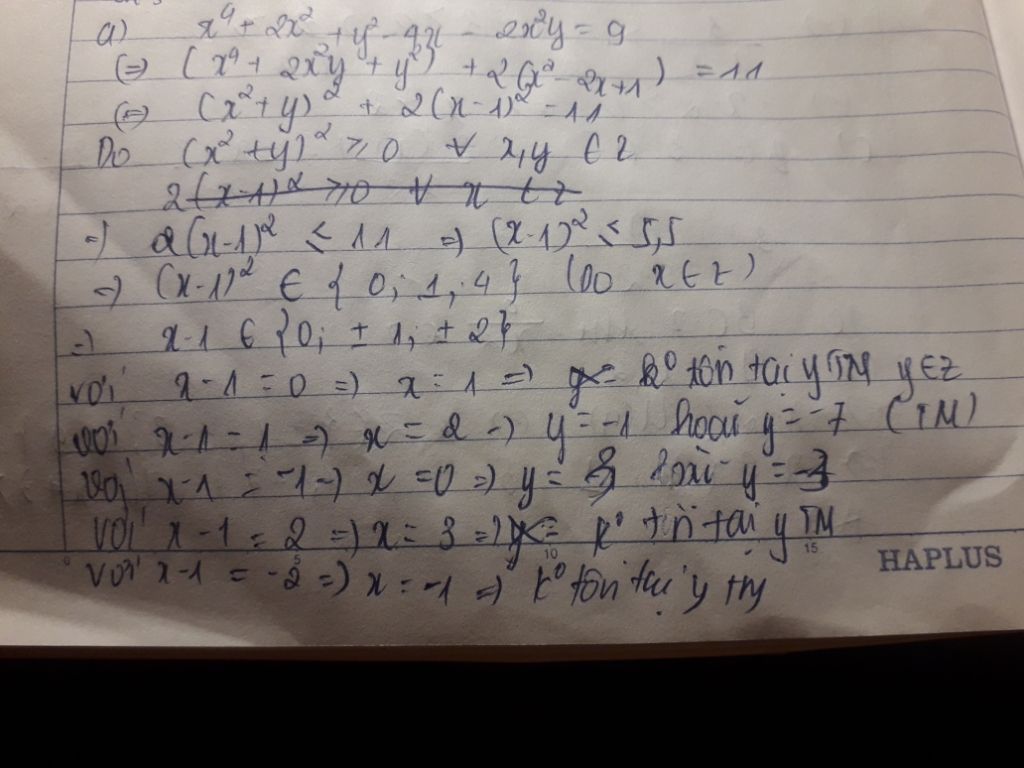 a) x⁴ + 2x² + y² - 4x - 2x²y = 9
(=) (x⁴ + 2x²y + y²) + 2(x² - 2x+1) = 11
(=) (x² + y)² + 2(x-1)² = 11
Do (x² + y)² ≥ 0 ∀ x,y ∈ Z
2(x-1)² ≥ 0 ∀ x ∈ Z
=) 2(x-1)² ≤ 11 =) (x-1)² ≤ 5,5
=) (x-1)² ∈ { 0; 1; 4 } (Do x ∈ Z)
=) x-1 ∈ {0; ± 1; ± 2}
với x-1 = 0 =) x = 1 =) k⁰ tồn tại y TM y∈Z
với x-1 = 1 =) x = 2 =) y = -1 hoặc y = -7 (TM)
với x-1 = -1 =) x = 0 =) y = 3 hoặc y = -3
với x-1 = 2 =) x = 3 =) k⁰ tồn tại y TM
với x-1 = -2 =) x = -1 =) k⁰ tồn tại y TM
5 10 15
HAPLUS